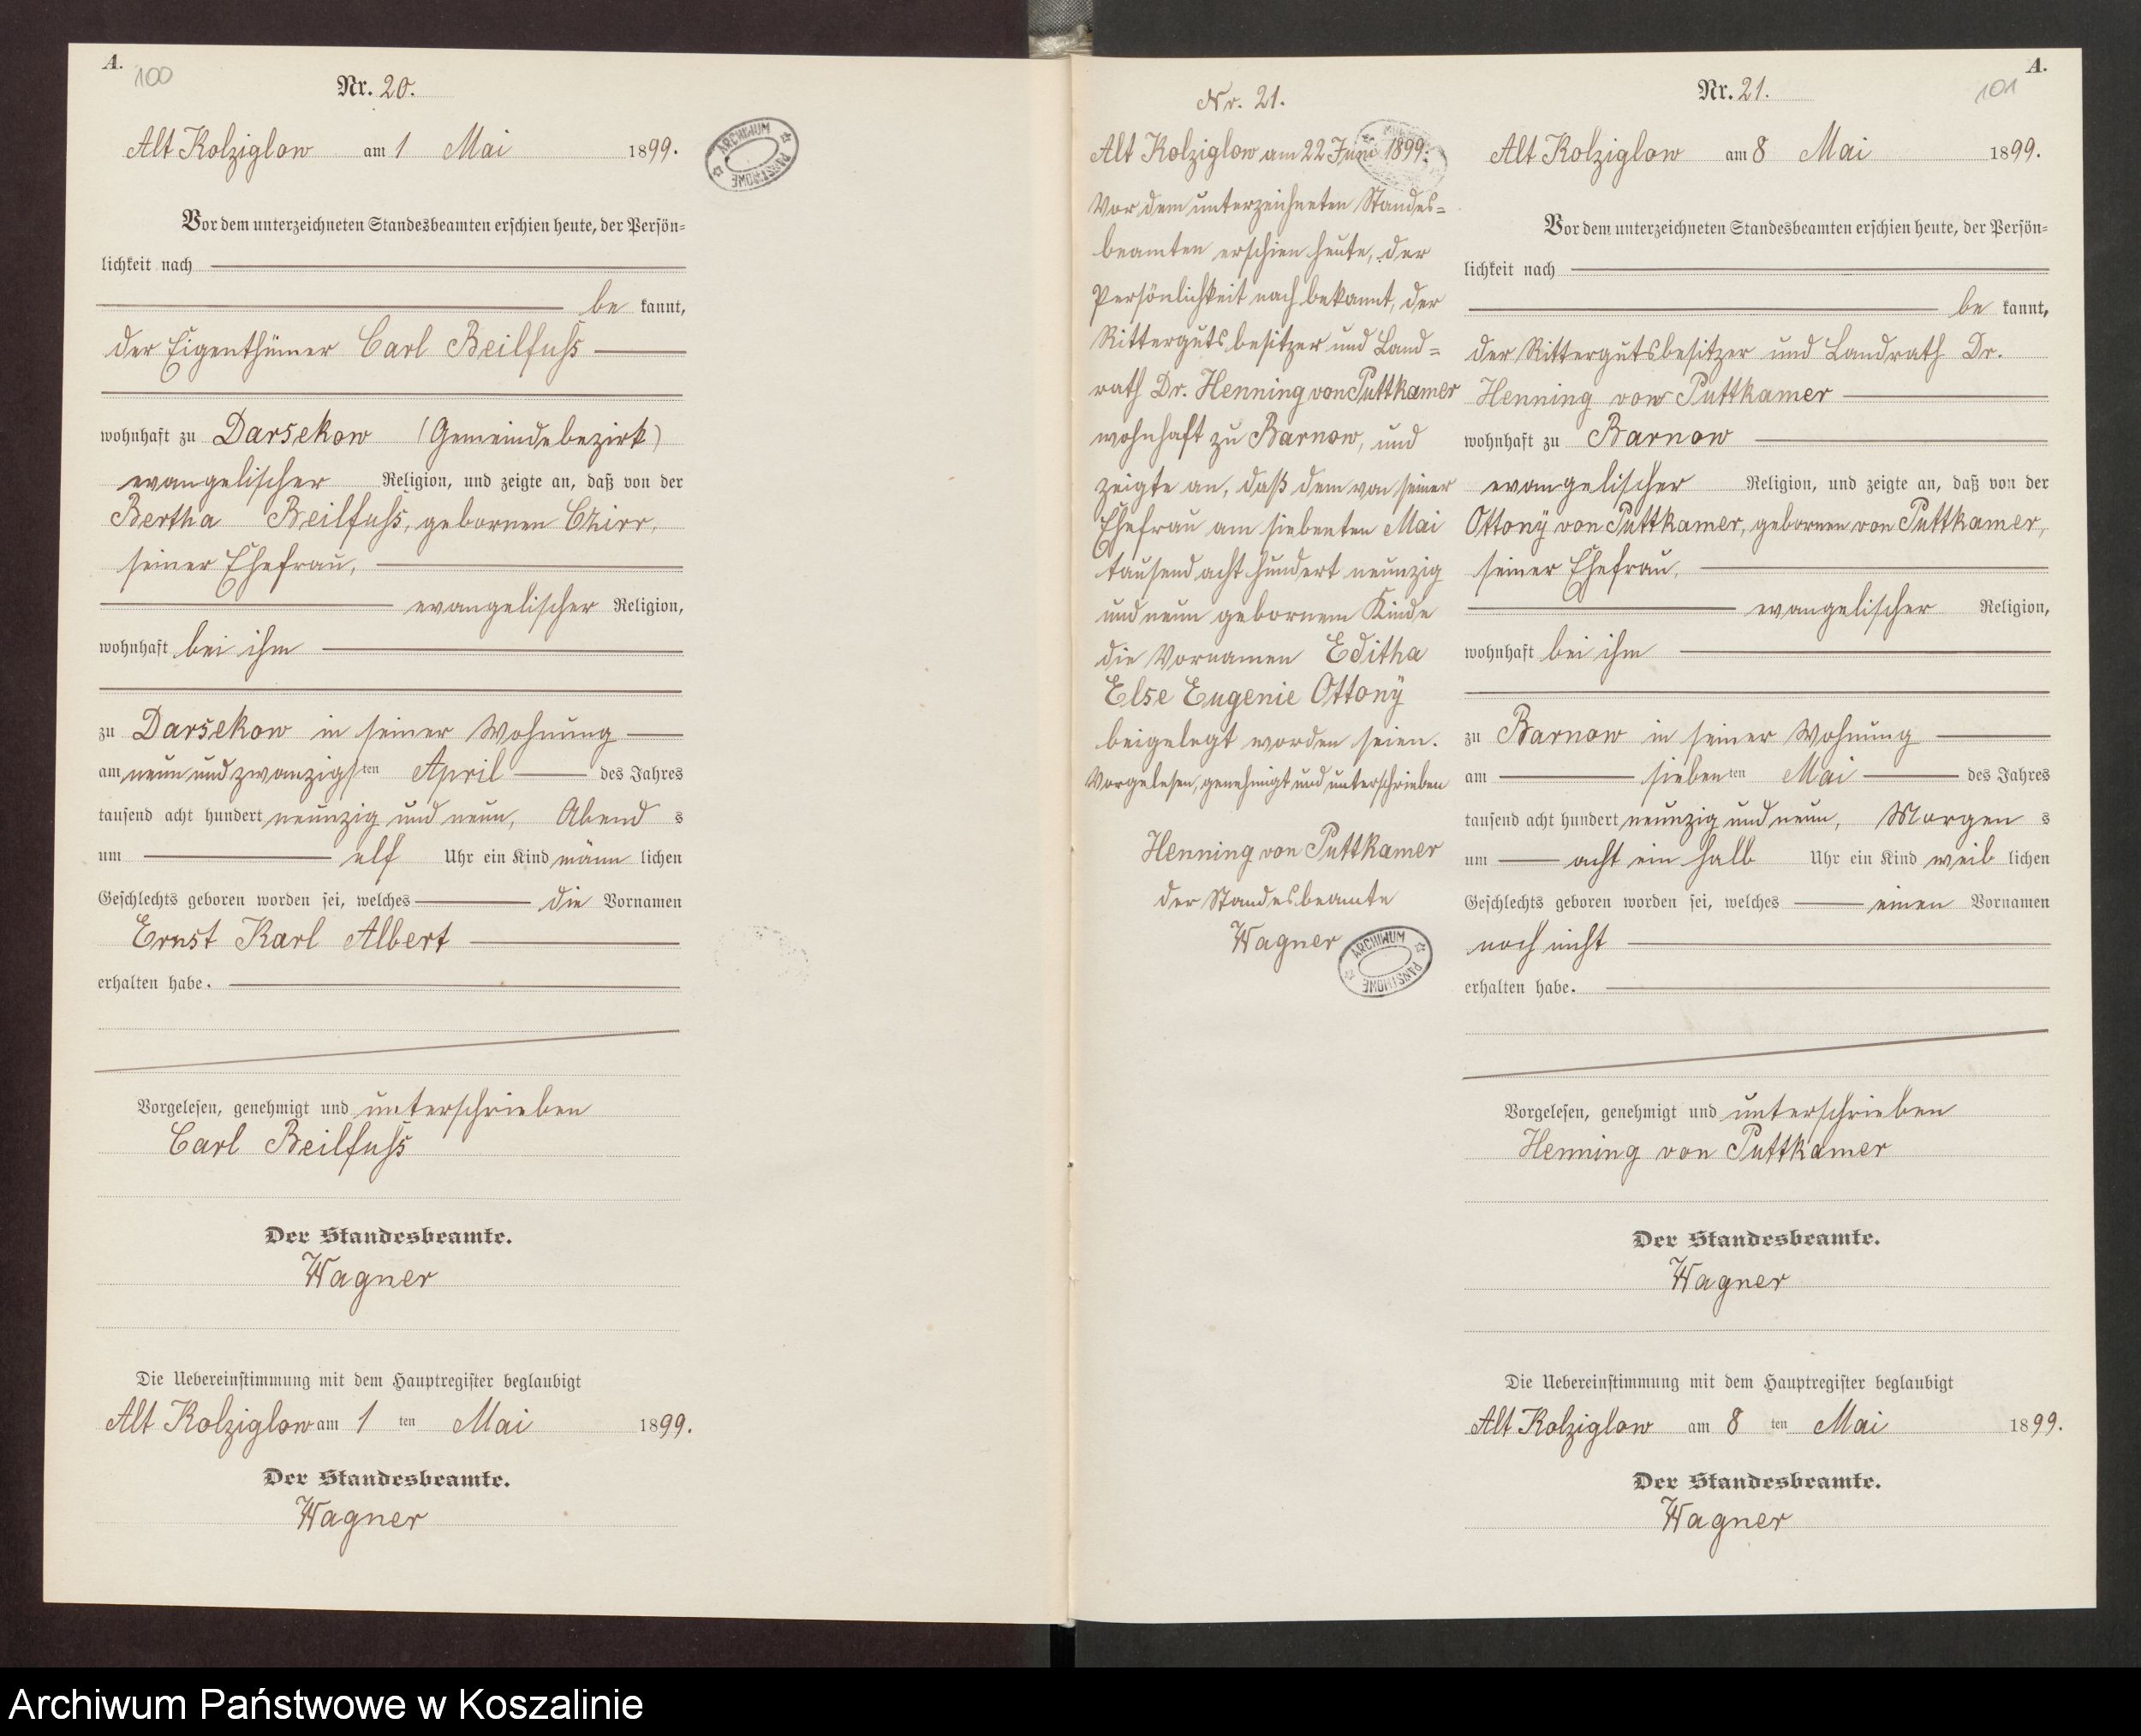 A.
100
Nr. 20.
Alt Kolziglow am 1 Mai 1899.
ARCHIWUM PAŃSTWOWE
Vor dem unterzeichneten Standesbeamten erschien heute, der Persön-
lichkeit nach
be kannt,
der Eigenthümer Carl Beilfuss
wohnhaft zu Darsekow (Gemeindebezirk)
evangelischer Religion, und zeigte an, daß von der
Bertha Beilfuss, gebornen Chirr,
seiner Ehefrau,
evangelischer Religion,
wohnhaft bei ihm
zu Darsekow in seiner Wohnung
am neun und zwanzigsten April des Jahres
tausend acht hundert neunzig und neun, Abend s
um elf Uhr ein Kind männ lichen
Geschlechts geboren worden sei, welches die Vornamen
Ernst Karl Albert
erhalten habe.
Vorgelesen, genehmigt und unterschrieben
Carl Beilfuss
Der Standesbeamte.
Wagner
Die Uebereinstimmung mit dem Hauptregister beglaubigt
Alt Kolziglow am 1 ten Mai 1899.
Der Standesbeamte.
Wagner
Nr. 21.
Alt Kolziglow am 22 Juni 1899.
Vor dem unterzeichneten Standes=
beamten erschien heute, der
Persönlichkeit nach bekannt, der
Rittergutsbesitzer und Land=
rath Dr. Henning von Puttkamer
wohnhaft zu Barnow, und
zeigte an, daß dem von seiner
Ehefrau am siebenten Mai
tausend acht hundert neunzig
und neun gebornem Kinde
die Vornamen Editha
Else Eugenie Ottonÿ
beigelegt worden seien.
Vorgelesen, genehmigt und unterschrieben
Henning von Puttkamer
der Standesbeamte
Wagner
ARCHIWUM PAŃSTWOWE
A.
101
Nr. 21.
Alt Kolziglow am 8 Mai 1899.
Vor dem unterzeichneten Standesbeamten erschien heute, der Persön-
lichkeit nach
be kannt,
der Rittergutsbesitzer und Landrath Dr.
Henning von Puttkamer
wohnhaft zu Barnow
evangelischer Religion, und zeigte an, daß von der
Ottonÿ von Puttkamer, gebornen von Puttkamer,
seiner Ehefrau,
evangelischer Religion,
wohnhaft bei ihm
zu Barnow in seiner Wohnung
am siebenten Mai des Jahres
tausend acht hundert neunzig und neun, Morgen s
um acht ein halb Uhr ein Kind weib lichen
Geschlechts geboren worden sei, welches einen Vornamen
noch nicht
erhalten habe.
Vorgelesen, genehmigt und unterschrieben
Henning von Puttkamer
Der Standesbeamte.
Wagner
Die Uebereinstimmung mit dem Hauptregister beglaubigt
Alt Kolziglow am 8 ten Mai 1899.
Der Standesbeamte.
Wagner
Archiwum Państwowe w Koszalinie